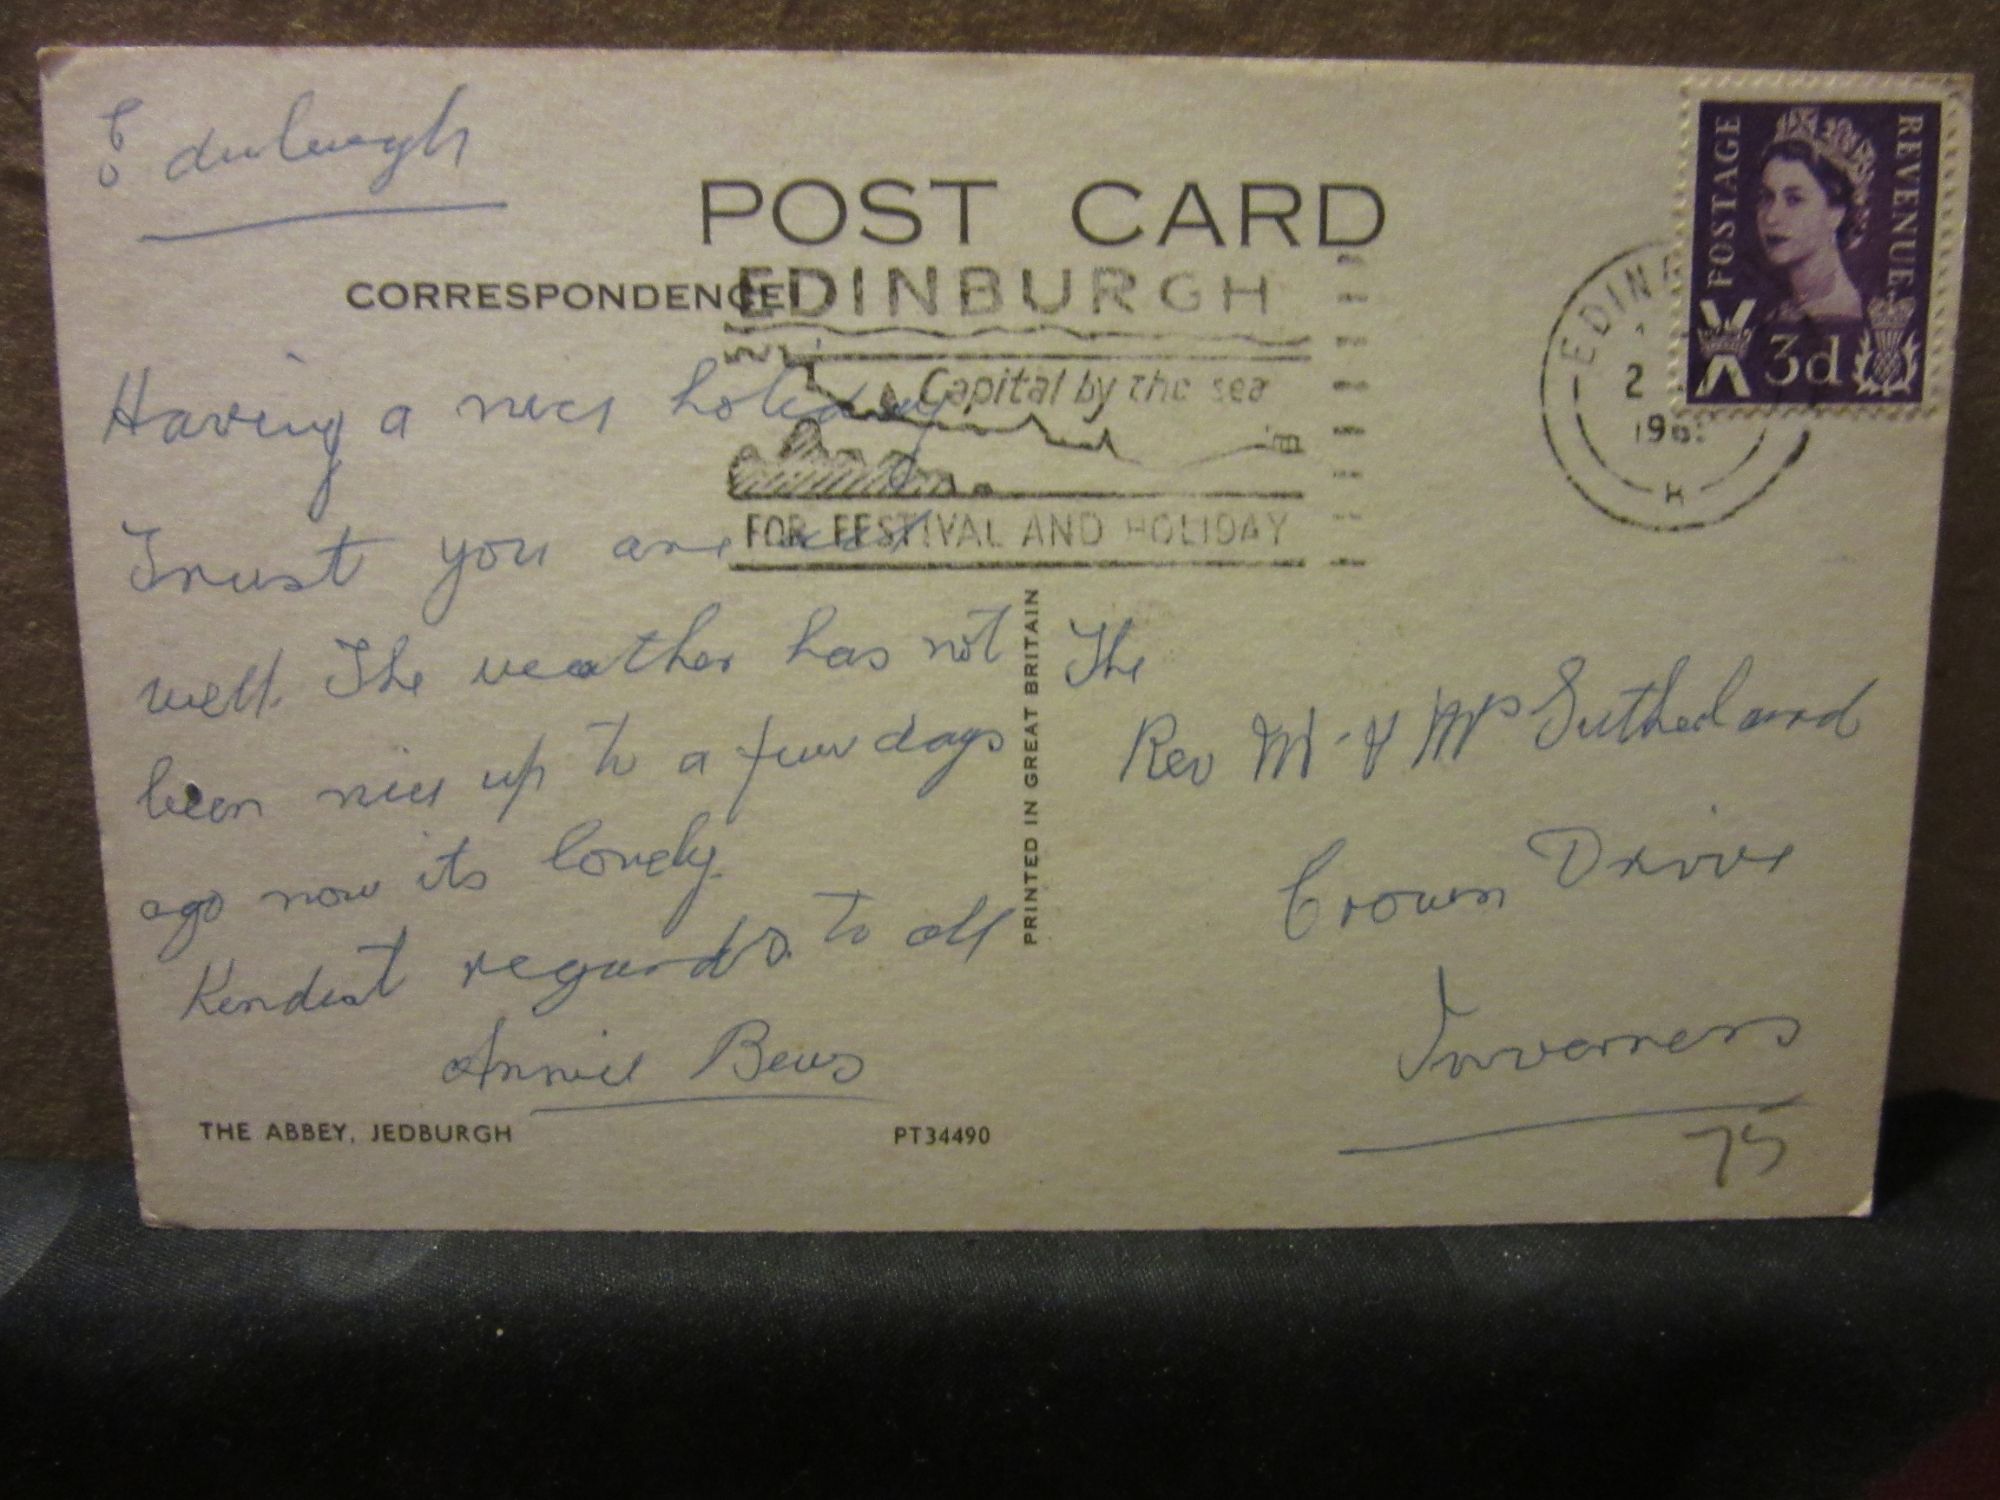 Edinburgh
POST CARD
CORRESPONDENCE
EDINBURGH
Capital by the sea
FOR FESTIVAL AND HOLIDAY
POSTAGE
REVENUE
3d
2
Having a nice holiday
Trust you are all
well. The weather has not
been nice up to a few days
ago now its lovely.
Kindest regards. to all
Annie Bews
THE ABBEY, JEDBURGH
PT34490
PRINTED IN GREAT BRITAIN
The
Rev Mr & Mrs Sutherland
Crown Drive
Inverness
75